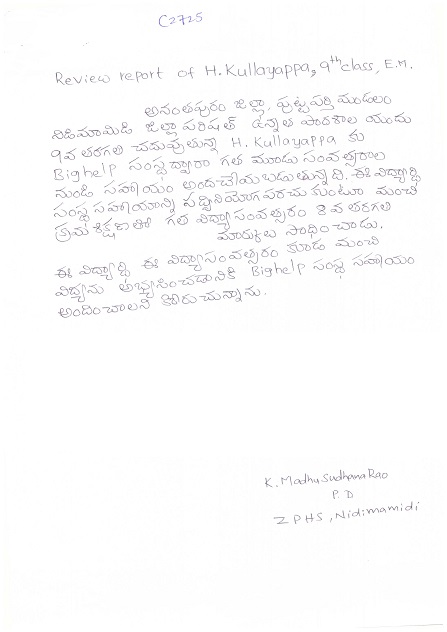 C2725
Review report of H. Kullayappa, 9th class, E.M.
అనంతపురం జిల్లా, పుట్టపర్తి మండలం
నిడిమామిడి జిల్లా పరిషత్ ఉన్నత పాఠశాల యందు
9వ తరగతి చదువుతున్న H. Kullayappa కు
Bighelp సంస్థ ద్వారా గత మూడు సంవత్సరాల
నుండి సహాయం అందచేయబడుతున్నది. ఈ విద్యార్థి
సంస్థ సహాయాన్ని సద్వినియోగపరచుకుంటూ మంచి
క్రమశిక్షణతో గత విద్యాసంవత్సరం 8వ తరగతి
మార్కులు సాధించాడు.
ఈ విద్యార్థి ఈ విద్యాసంవత్సరం కూడ మంచి
విద్యను అభ్యసించడానికి Bighelp సంస్థ సహాయం
అందించాలని కోరుచున్నాను.
K. Madhu Sudhana Rao
P. D
ZPHS, Nidimamidi